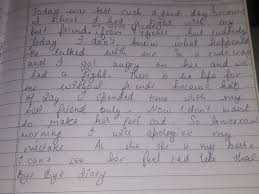 Today was not such a good day because
at school I had a fight with my
best friend, from 1 years but suddenly
today I don't know what happened
she talked with me in a rude way
and I got angry on her and we
had a fight. There is no life for
me without friends because half
of day I spended time with my
best friend only. Now I don't want
to make her feel sad. So tomorrow
morning I will apologise my
mistake. As she is my
I can't see her feel sad like that
Bye Bye diary